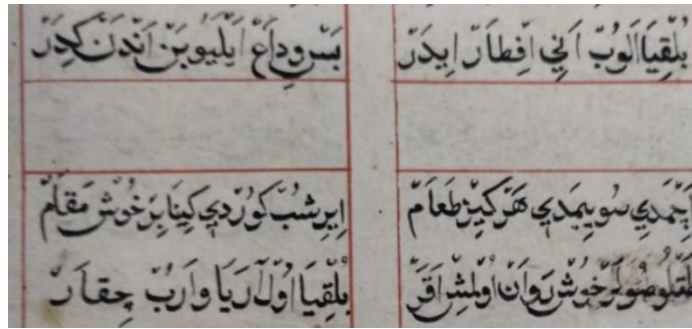 بُلْقِيَا اَلُوبْ اَنِي اِفْطَارْ اِيدَرْ بَسْ وِدَاعْ اَيْلَيُوبَنْ اَنْدَنْ كِدَرْ
اِچْمَدِي سُو يِيمَدِي هَرْكِيزْ طَعَامْ اِيرِشُبْ كُورْدِي كِينَا بِرْ خُوشْ مَقَامْ
طَتْلُو صُولَرْ خُوشْ رَوَانْ اُولْمِشْ اَقَرْ بُلْقِيَا اُولْ آرَيَا وَارُبْ چِقَارْ